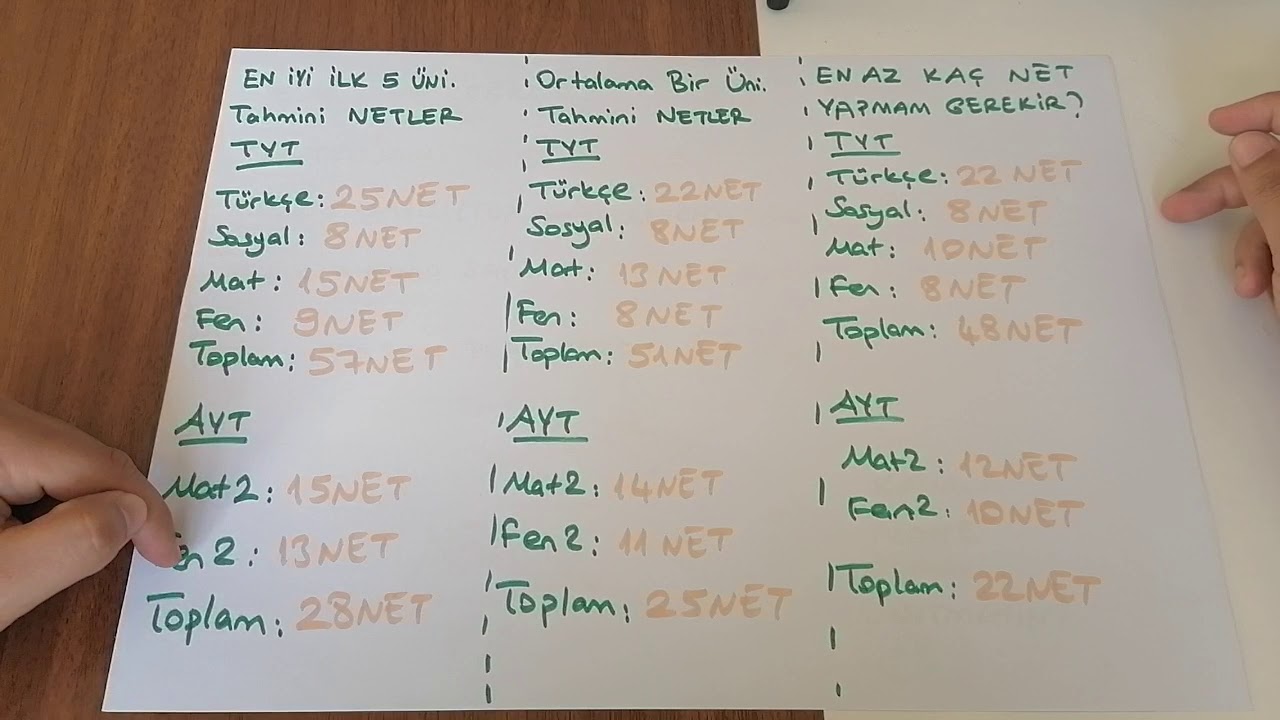 EN İYİ İLK 5 ÜNİ.
Tahmini NETLER
TYT
Türkçe: 25NET
Sosyal: 8NET
Mat: 15NET
Fen: 9NET
Toplam: 57NET
AYT
Mat2: 15NET
Fen2: 13NET
Toplam: 28NET
Ortalama Bir Üni.
Tahmini NETLER
TYT
Türkçe: 22NET
Sosyal: 8NET
Mat: 13NET
Fen: 8NET
Toplam: 51NET
AYT
Mat2: 14NET
Fen2: 11NET
Toplam: 25NET
EN AZ KAÇ NET
YAPMAM GEREKİR?
TYT
Türkçe: 22NET
Sosyal: 8NET
Mat: 10NET
Fen: 8NET
Toplam: 48NET
AYT
Mat2: 12NET
Fen2: 10NET
Toplam: 22NET